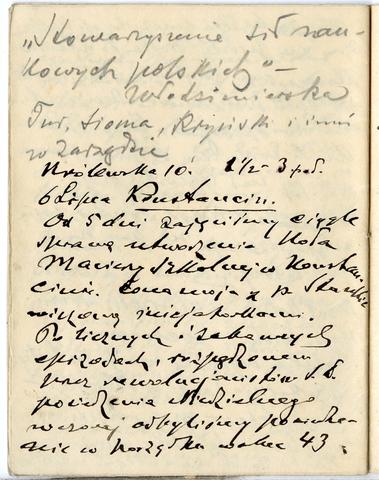 „Stowarzyszenie sił nau-
kowych polskich" –
Włodzimierska
Tur, Sioma, i inni
w Zarządzie
Królewska 10. 1½ - 3 pał.
6 Lipca Konstancin.
Od 5 dni zajęliśmy ciągle
sprawą utworzenia Koła
Macierzy Szkolnej w Konstan-
cinie. Żona moja z p.
są inicjatorkami.
Po licznych i zabawnych
epizodach, rozpędzonem
przez rewolucjonistów S. D.
posiedzenia niedzielnego
wczoraj odbyliśmy posiedze-
nie w porządku wobec 43